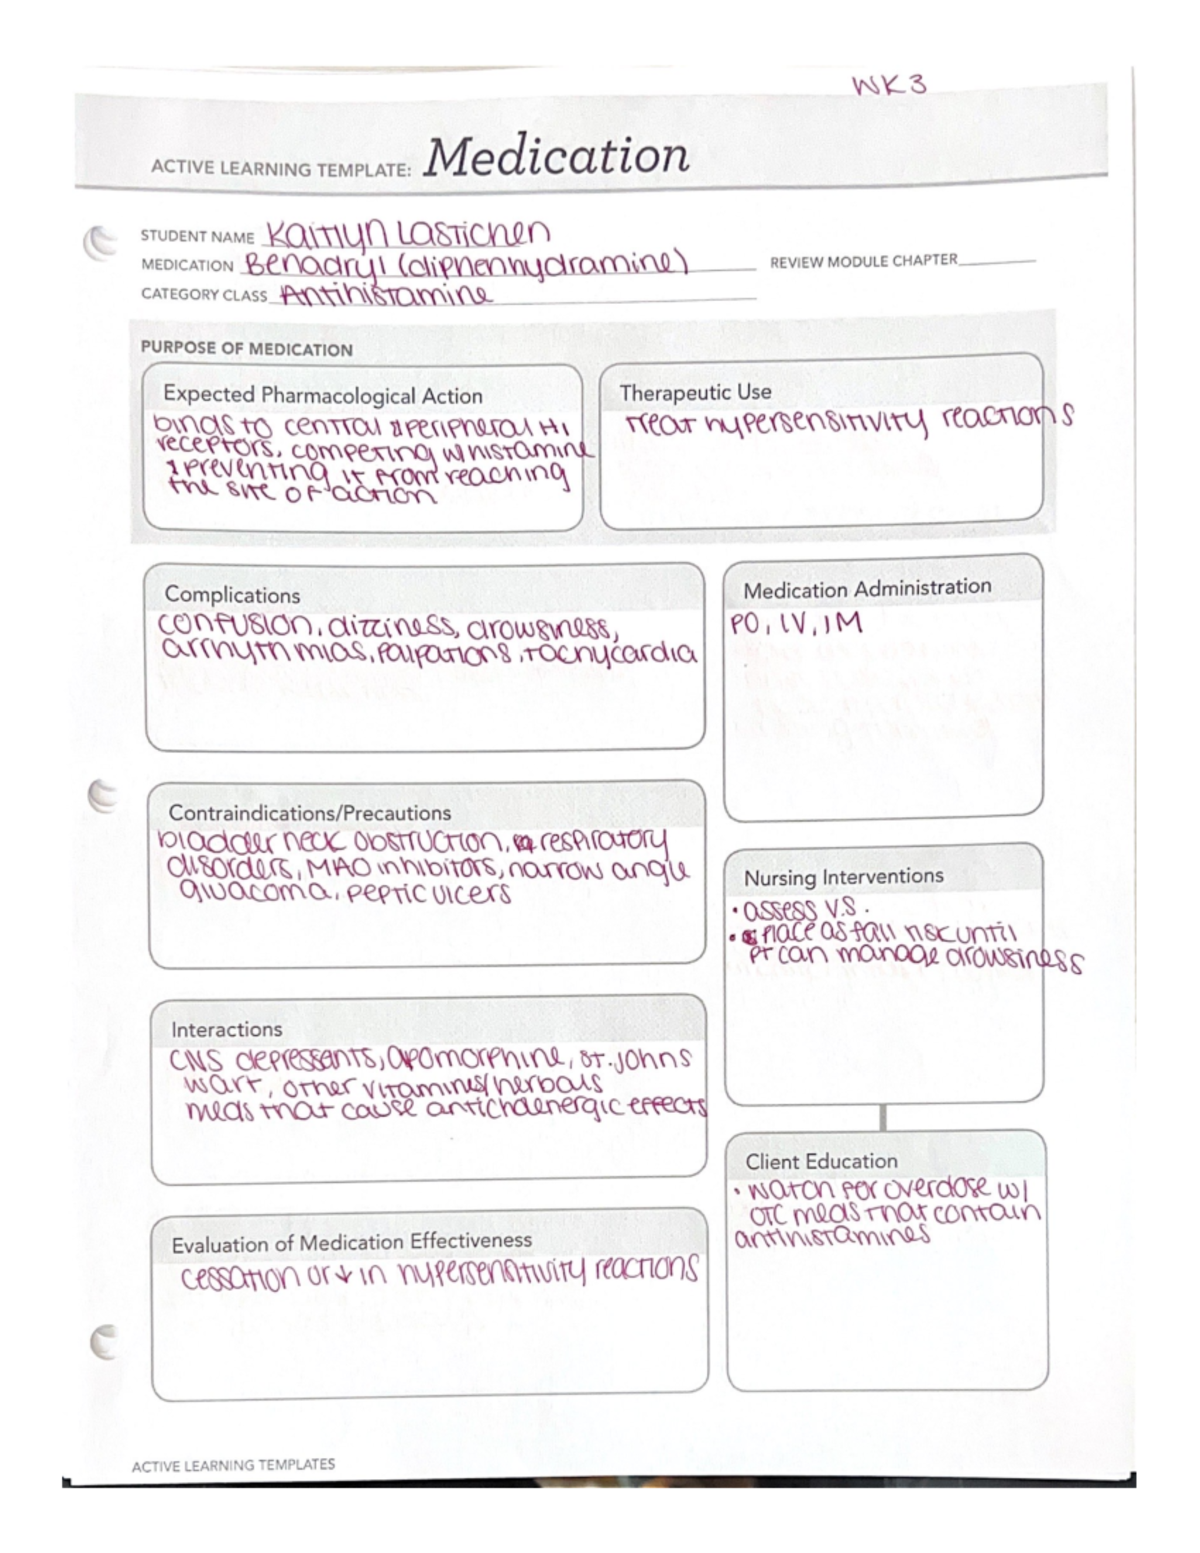 WK3
ACTIVE LEARNING TEMPLATE: Medication
STUDENT NAME Kaitlyn Lastichen
MEDICATION Benadryl (diphenhydramine) REVIEW MODULE CHAPTER
CATEGORY CLASS Antihistamine
PURPOSE OF MEDICATION
Expected Pharmacological Action
binds to central & peripheral H1
receptors, competing w histamine
& preventing it from reaching
the site of action
Therapeutic Use
Treat hypersensitivity reactions
Complications
confusion, dizziness, drowsiness,
arrhythmias, palpations, tachycardia
Medication Administration
PO, IV, IM
Contraindications/Precautions
bladder neck obstruction, respiratory
disorders, MAO inhibitors, narrow angle
glucacoma, peptic ulcers
Nursing Interventions
• assess V.S.
• place as fall risk until
pt can manage drowsiness
Interactions
CNS depressents, apomorphine, St. Johns
wart, other vitamines/herbals
meds that cause anticholenergic effects
Client Education
• Watch for overdose w/
OTC meds that contain
antihistamines
Evaluation of Medication Effectiveness
cessation or ↓ in hypersensitivity reactions
ACTIVE LEARNING TEMPLATES